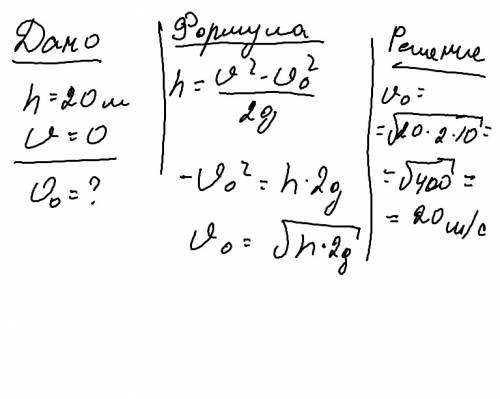 Дано
h = 20 м
υ = 0
υ₀ = ?
Формула
h = υ² - υ₀² / 2g
-υ₀² = h · 2g
υ₀ = √h · 2g
Решение
υ₀ =
= √20 · 2 · 10 =
= √400 =
= 20 м/с